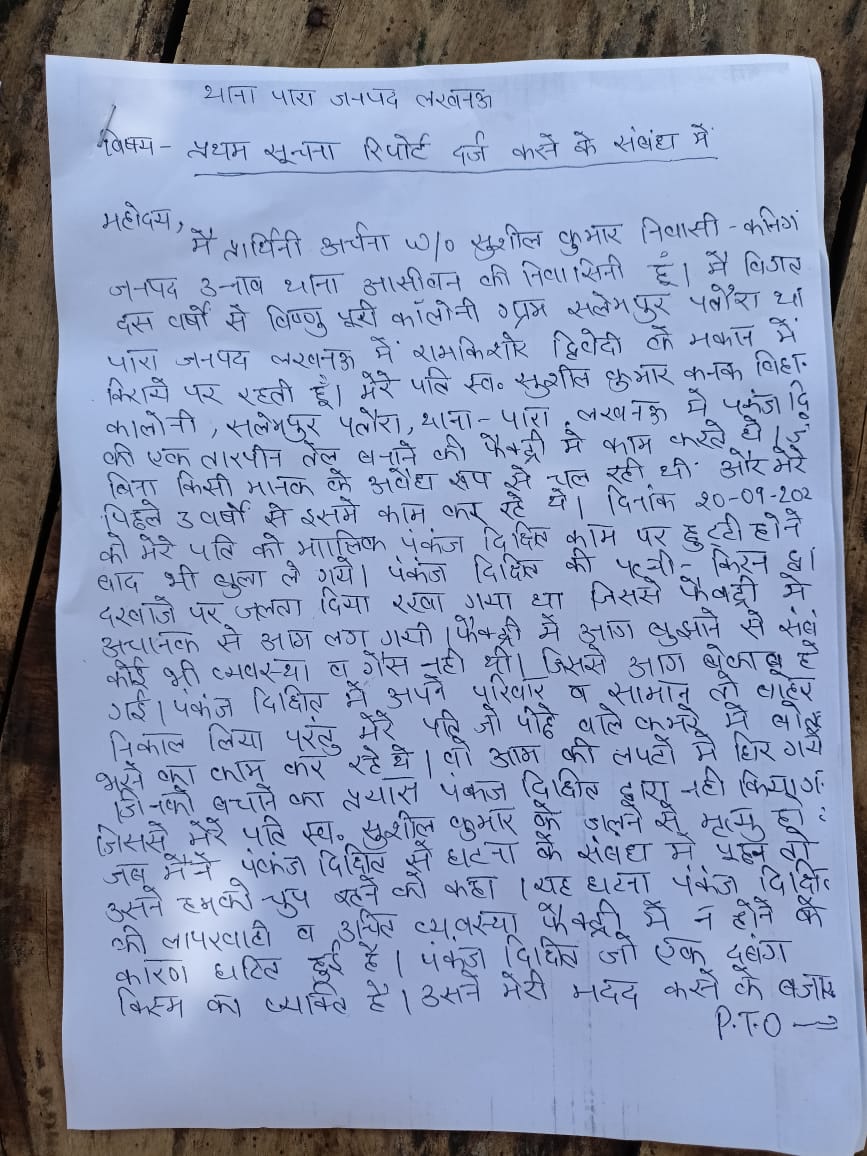 थाना पारा जनपद लखनऊ
विषय - प्रथम सूचना रिपोर्ट दर्ज करने के संबंध में
महोदय,
मैं प्रार्थिनी अर्चना W/o सुशील कुमार निवासी - कनिगं
जनपद उन्नाव थाना आसीवन की निवासिनी हूँ। मैं विगत
दस वर्षों से विष्णु पूरी कॉलोनी ग्राम सलेमपुर पतौरा था
पारा जनपद लखनऊ में रामकिशोर द्विवेदी के मकान में
किराये पर रहती हूँ। मेरे पति स्व. सुशील कुमार कनक विहा
कालोनी, सलेमपुर पतौरा, थाना - पारा लखनऊ में पकंज दि
की एक तारपीन तेल बनाने की फैक्ट्री में काम करते थे। जु
बिना किसी मानक के अवैध रूप से चल रही थी और मेरे
पिछले 3 वर्षों से इसमें काम कर रहे थे। दिनांक 20-09-202
को मेरे पति को मालिक पंकज दिक्षित काम पर छुट्टी होने
बाद भी बुला ले गये। पंकज दिक्षित की पत्नी - किरन
दरवाजे पर जलता दिया रखा गया था जिससे फैक्ट्री में
अचानक से आग लग गयी। फैक्ट्री में आग बुझाने से संबं
कोई भी व्यवस्था व गैस नही थी। जिससे आग बेकाबू हो
गई। पंकज दिक्षित में अपने परिवार व सामान को बाहर
निकाल लिया परंतु मेरे पति जो पीछे वाले कमरे में
भरने का काम कर रहे थे। वो आग की लपटों में घिर गये
जिनको बचाने का प्रयास पंकज दिक्षित द्वारा नही किया ग
जिससे मेरे पति स्व. सुशील कुमार की जलने से मृत्यु हो
जब मैंने पंकज दिक्षित से घटना के संबंध में पूछा तो
उसने हमको चुप रहने को कहा। यह घटना पंकज दिक्षि
की लापरवाही व उचित व्यवस्था फैक्ट्री में न होने के
कारण घटित हुई है। पंकज दिक्षित जो एक दबंग
किस्म का व्यक्ति है। उसने मेरी मदद करने के बजाए
P.T.O →